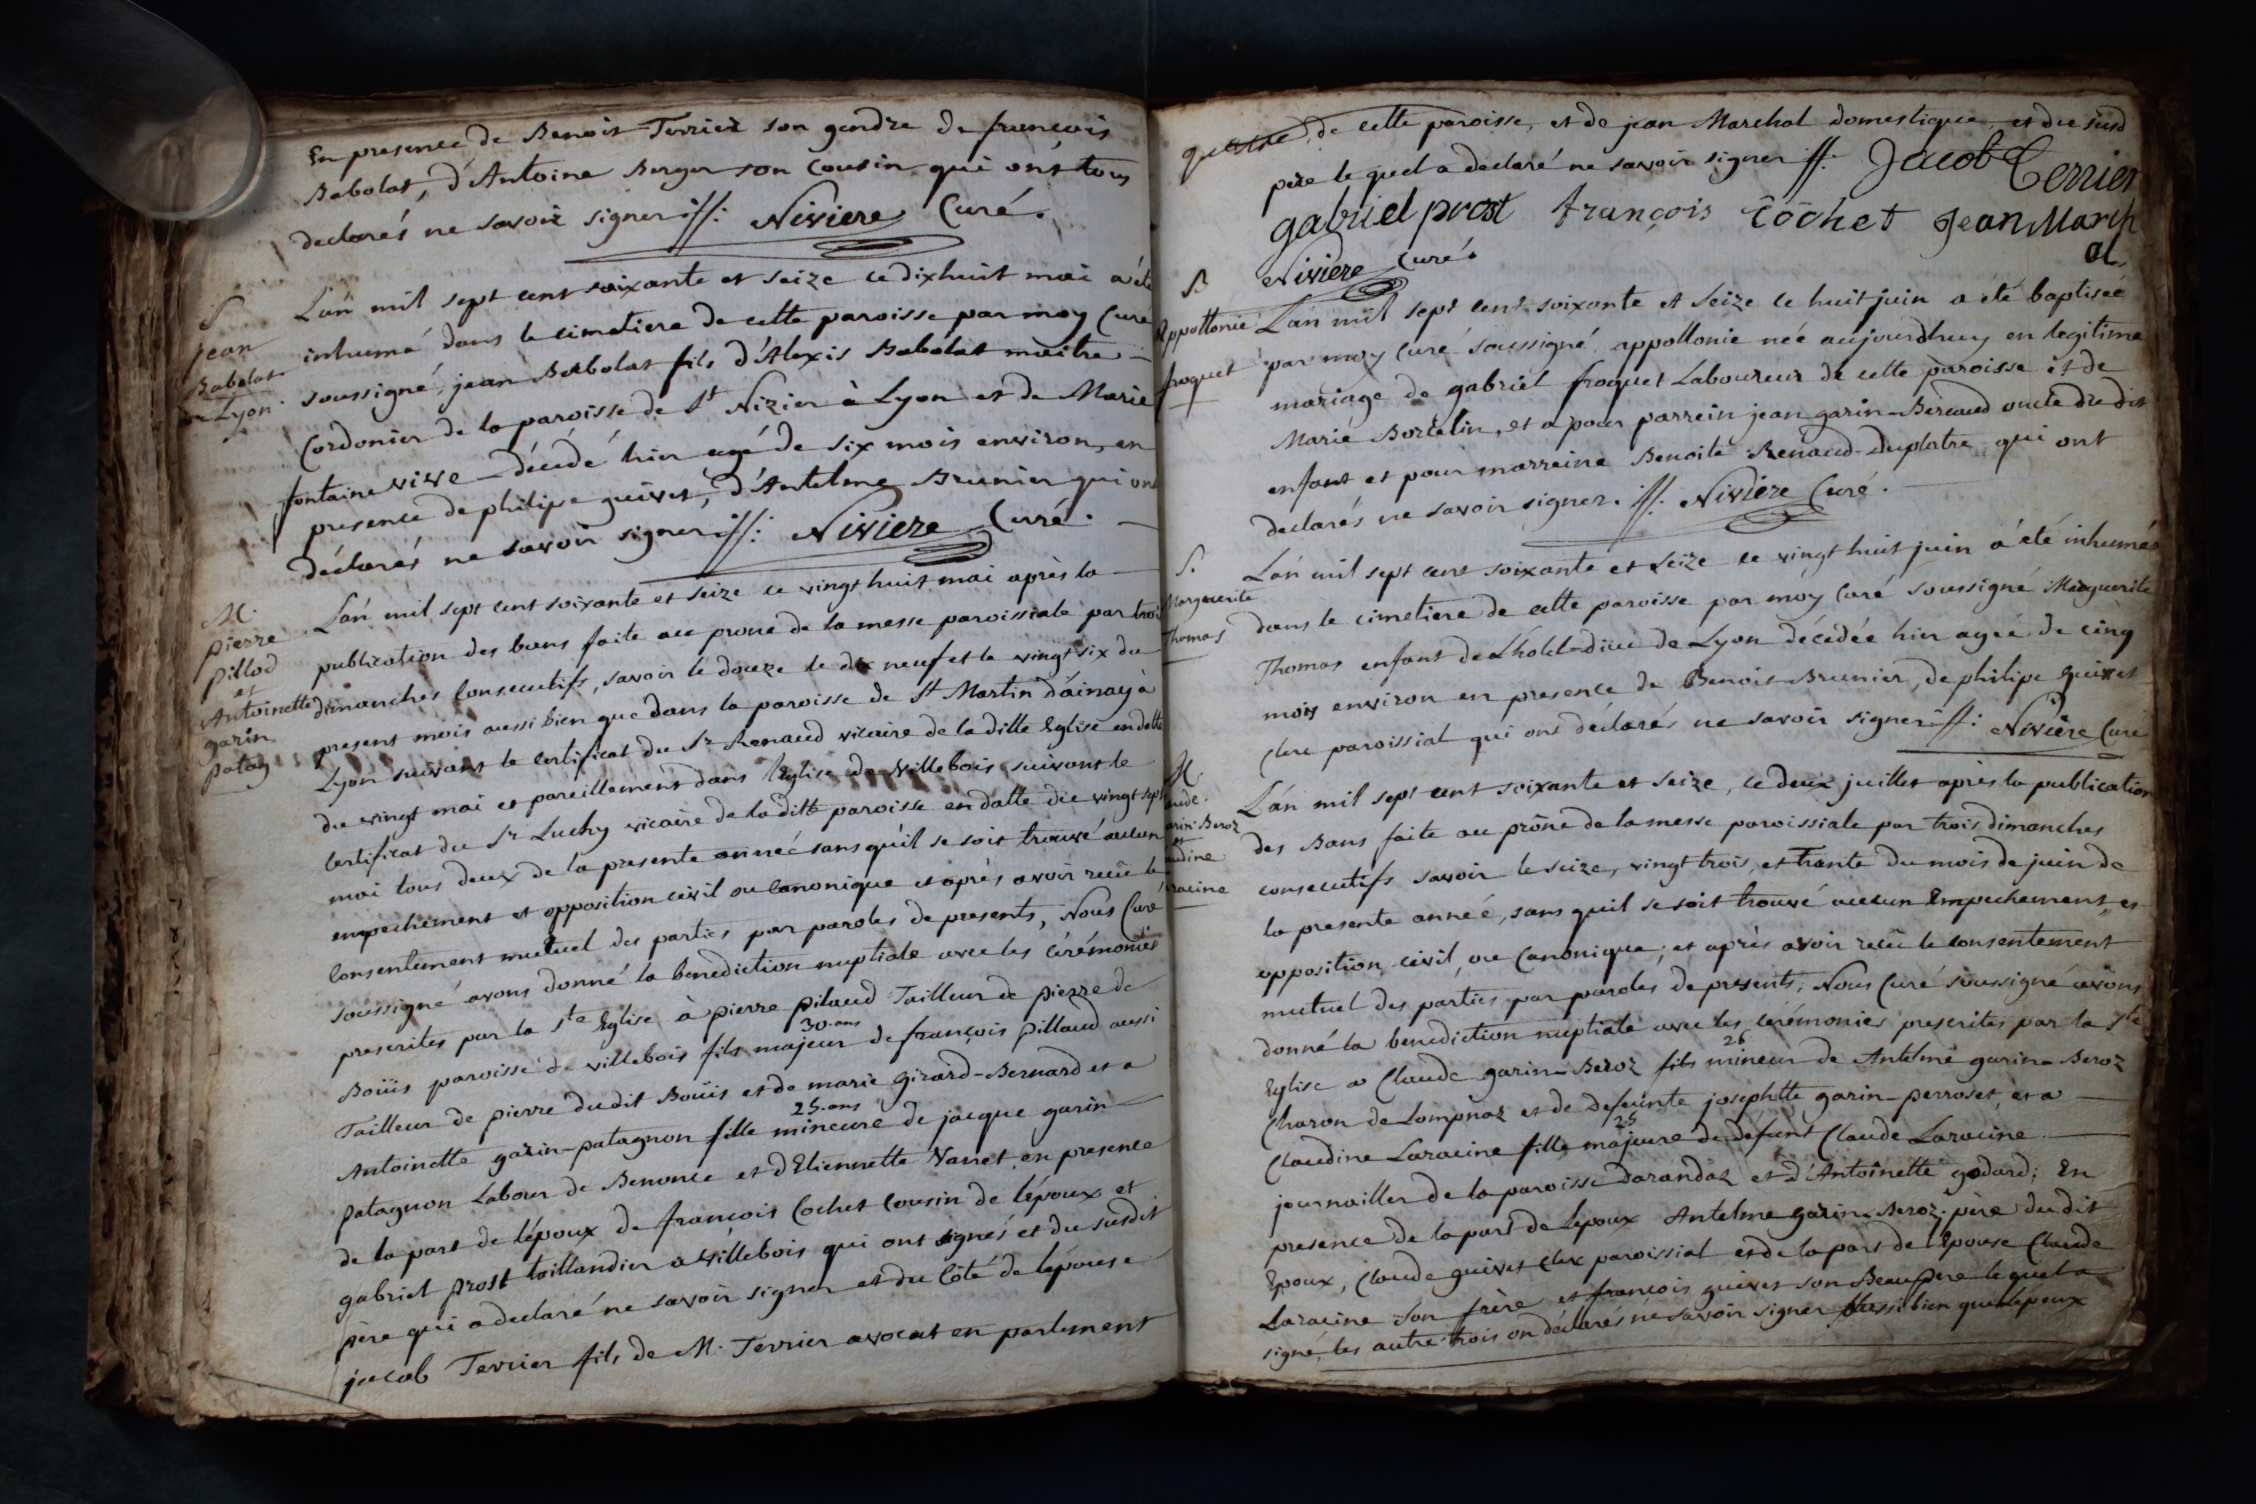 En presence de Benoit Terrier son gendre de francois
Babolat, d'Antoine Berger son cousin qui ont tous
declarés ne savoir signer //: Niviere Curé.
S
jean
Babolat
Lyon
L'an mil sept cent soixante et seize ce dixhuit mai a été
inhumé dans le cimetiere de cette paroisse par moy Curé
soussigné, jean Babolat fils d'Alexis Babolat maitre
Cordonier de la paroisse de St Nizier à Lyon et de Marie
fontaine vive décédé hier agé de six mois environ, en
presence de philipe guivet, d'Antelme Brunier qui ont
déclarés ne savoir signer //: Niviere Curé.
M.
pierre
pillod
et
Antoinette
garin
patag
L'an mil sept cent soixante et seize ce vingt huit mai après la
publication des bans faite au prone de la messe paroissiale par trois
dimanches consecutifs, savoir le douze le dix neuf et le vingt six du
present mois aussi bien que dans la paroisse de St Martin d'ainay à
Lyon suivant le certificat du Sr Renaud vicaire de la ditte Eglise en datte
du vingt mai et pareillement dans l'Eglise de villebois suivant le
certificat du Sr Luchy vicaire de la ditte paroisse en datte du vingt sept
mai tous deux de la presente année sans qu'il se soit trouvé aucun
empechement et opposition civil ou canonique et après avoir recû le
consentement mutuel des parties par paroles de presents, Nous Curé
soussigné avons donné la benediction nuptiale avec les cérémonies
prescrites par la ste Eglise à pierre pilaud Tailleur de pierre de
30. ans
Bouis paroisse de villebois fils majeur de françois pillaud aussi
Tailleur de pierre dudit Bouis et de marie girard-Bernard et a
25. ans
Antoinette garin-patagnon fille mineure de jacque garin
patagnon Labour de Benonce et d'Etiennette Varret en presence
de la part de l'époux de françois Cochet Cousin de l'époux et
gabriel prost taillandier à villebois qui ont signés et du susdit
père qui a declaré ne savoir signer et du côté de l'épouse
jacob Terrier fils de M. Terrier avocat en parlement
de cette paroisse, et de jean Marchal domestique et du susd
pere le quel a declaré ne savoir signer //: Jacob Terrier
gabriel prost françois Cochet Jean March
al
Niviere Curé.
B
Appollonie
froquet
L'an mil sept cent soixante et seize ce huit juin a été baptisée
par moy Curé soussigné appollonie née aujourdhuy en legitime
mariage de gabriel froquet Laboureur de cette paroisse et de
Marie Bortelin, et a pour parrein jean garin-Bercaud oncle du dit
enfant et pour marreine Benoite Renaud-Duplatre qui ont
declarés ne savoir signer. //: Niviere Curé.
S.
Marguerite
Thomas
L'an mil sept cent soixante et seize ce vingt huit juin a été inhumée
dans le cimetiere de cette paroisse par moy Curé soussigné Marguerite
Thomas enfant de Lhotel-dieu de Lyon décédée hier agée de cinq
mois environ en presence de Benoit Brunier, de philipe guivet
clerc paroissial qui ont déclarés ne savoir signer //: Niviere Curé
M.
aude
arin Beroz
et
audine
aracine
L'an mil sept cent soixante et seize, ce deux juillet après la publication
des Bans faite au prône de la messe paroissiale par trois dimanches
consecutifs savoir le seize, vingt trois, et trante du mois de juin de
la presente année, sans qu'il se soit trouvé aucun Empechement et
opposition civil, ou canonique; et après avoir recû le consentement
mutuel des parties par paroles de presents; Nous Curé soussigné avons
donné la benediction nuptiale avec les cérémonies prescrites par la ste
26
Eglise a Claude garin-Beroz fils mineur de Antelme garin-Beroz
Charon de Lompnaz et de defeunte josephtte garin-perroset, et a
25
Claudine Laracine fille majeure de defunt Claude Laracine
journaillier de la paroisse darandaz et d'Antoinette godard; En
presence de la part de l'epoux Antelme garin-Beroz père du dit
Epoux, Claude guivet clerc paroissial et de la part de l'Epouse Claude
Laracine son frère et françois guivet son Beaupere le quel a
signé, les autre trois on déclarés ne savoir signer aussi bien que l'epoux